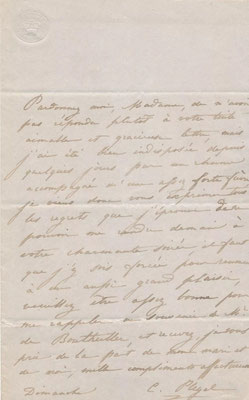 Pardonnez moi, Madame, de n'avoir
pas répondu plutot à votre très
aimable et gracieuse lettre, mais
j'ai été bien indisposée depuis
quelques jours par un rhume
accompagné d'une assez forte fièvre
je viens donc vous exprimer
les regrets que j'éprouve de ne
pouvoir me rendre demain à
votre charmante soirée il faut
que j'y sois forcée pour renoncer
à un aussi grand plaisir,
veuillez être assez bonne pour
me rappeler au souvenir de Mr
de Bouthillier, et recevez je vous
prie de la part de mon mari et
de moi, mille compliments affectueux
Dimanche C. Pleyel